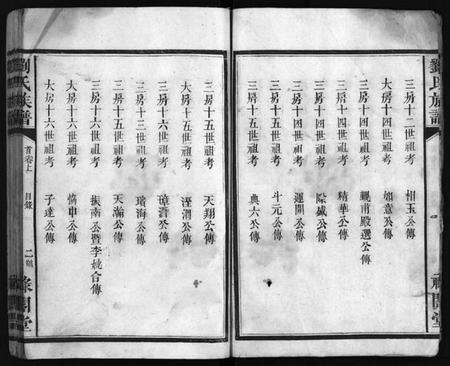 劉氏族譜
三房十二世祖考 相玉公傳
大房十四世祖考 如意公傳
三房十四世祖考 覲甫殿選公傳
三房十四世祖考 精華公傳
三房十四世祖考 隆盛公傳
三房十四世祖考 運開公傳
三房十五世祖考 斗元公傳
三房十五世祖考 典六公傳
三房十五世祖考 天翔公傳
大房十五世祖考 涇渭公傳
三房十六世祖考 公傳
三房十三世祖考 海公傳
三房十五世祖考 天瀚公傳
大房十六世祖考 振南公暨李統合傳
大房十六世祖考 慎中公傳
大房十六世祖考 子達公傳
劉氏族譜 首卷上 目錄 二號 祿閣堂